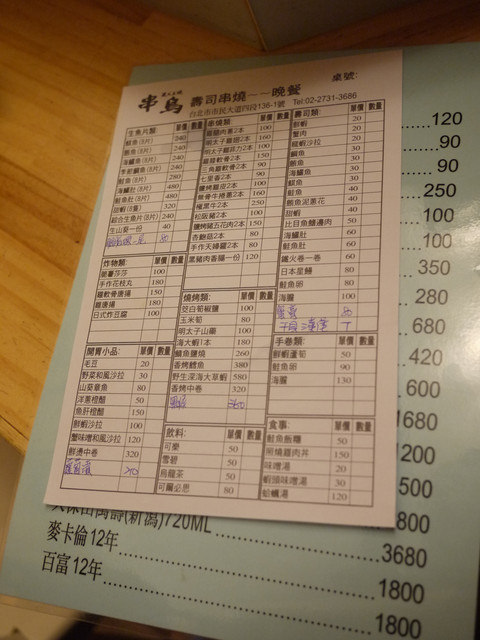 串鳥 壽司串燒~~晚餐 桌號:
台北市市民大道四段136-1號 Tel:02-2731-3686
生魚片類 單價 數量
240
鮪魚(8片) 240
海鱺魚(8片) 240
季節鯛魚(8片) 240
鮭魚(8片) 280
海鱺肚(8片) 480
鮭魚肚(8片) 480
甜蝦(8隻) 320
綜合生魚片(8片) 240
生山葵一份 40
炸物類: 單價 數量
100
手作花枝丸 180
雞軟骨唐揚 150
雞唐揚 180
日式炸豆腐 100
開胃小品: 單價 數量
毛豆 20
野菜和風沙拉 30
山葵章魚 80
洋蔥橙醋 50
魚肝橙醋 150
鮮蝦沙拉 100
蟹味噌和風沙拉 120
鮮燙中卷 320
串燒類 單價 數量
雞腿肉蔥2本 100
明太子雞翅2本 160
明太子雞菲力2本 100
雞軟骨2本 150
三角雞軟骨2本 90
七里香2本 90
100
無骨牛捲蔥2本 160
極黑牛2本 250
松阪豬2本 100
鹽烤豬五花肉2本 150
杏鮑菇2本 80
手作天婦羅2本 80
黑豬肉香腸一份 120
燒烤類: 單價 數量
茭白筍椒鹽 100
玉米筍 80
明太子山藥 100
海大蝦1本 180
鯖魚鹽燒 260
香烤鱈魚 380
野生深海大草蝦 580
香烤中卷 320
飲料: 單價 數量
可樂 50
雪碧 50
烏龍茶 50
可爾必思 80
壽司類 單價 數量
鮮蝦 20
蟹肉 20
龍蝦沙拉 20
鯛魚 20
鮪魚 30
海鱺魚 30
旗魚 30
鮭魚 40
鮪魚泥蔥花 40
甜蝦 40
比目魚鰭邊肉 50
海鱺肚 60
鮭魚肚 60
鐵火卷一卷 60
日本星鰻 80
鮭魚卵 80
海膽 100
手卷類: 單價 數量
鮮蝦蘆筍 50
鮭魚卵 90
海膽 130
食事: 單價 數量
鮭魚飯糰 50
照燒雞肉丼 150
味噌湯 20
蝦頭味噌湯 30
蛤蠣湯 120
120
90
90
250
100
100
350
280
680
420
600
1680
1200
500
(新潟)720ML 800
麥卡倫12年 3680
百富12年 1800
1800